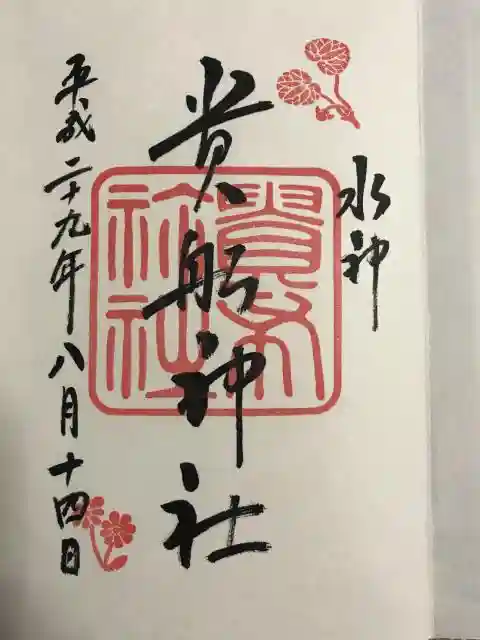 水神
貴船神社
平成二十九年八月十四日